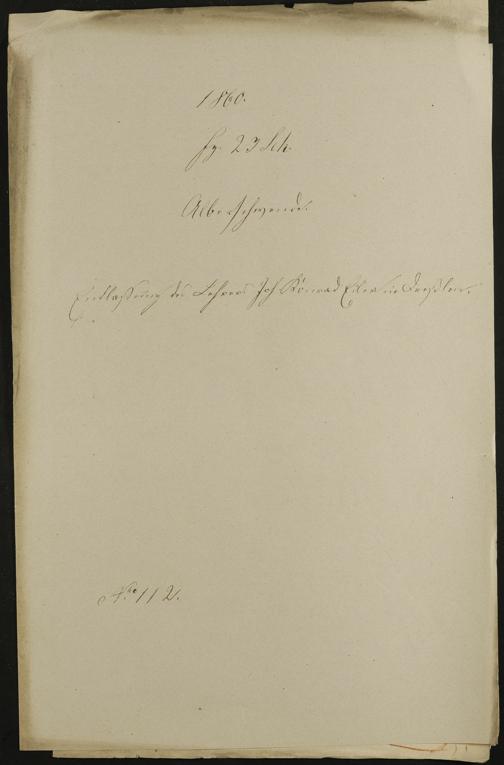 1860.
Fz. 23 Sch.
Alberschwende.
Entlassung des Lehrers Joh Konrad in Dreßlen.
No 112.